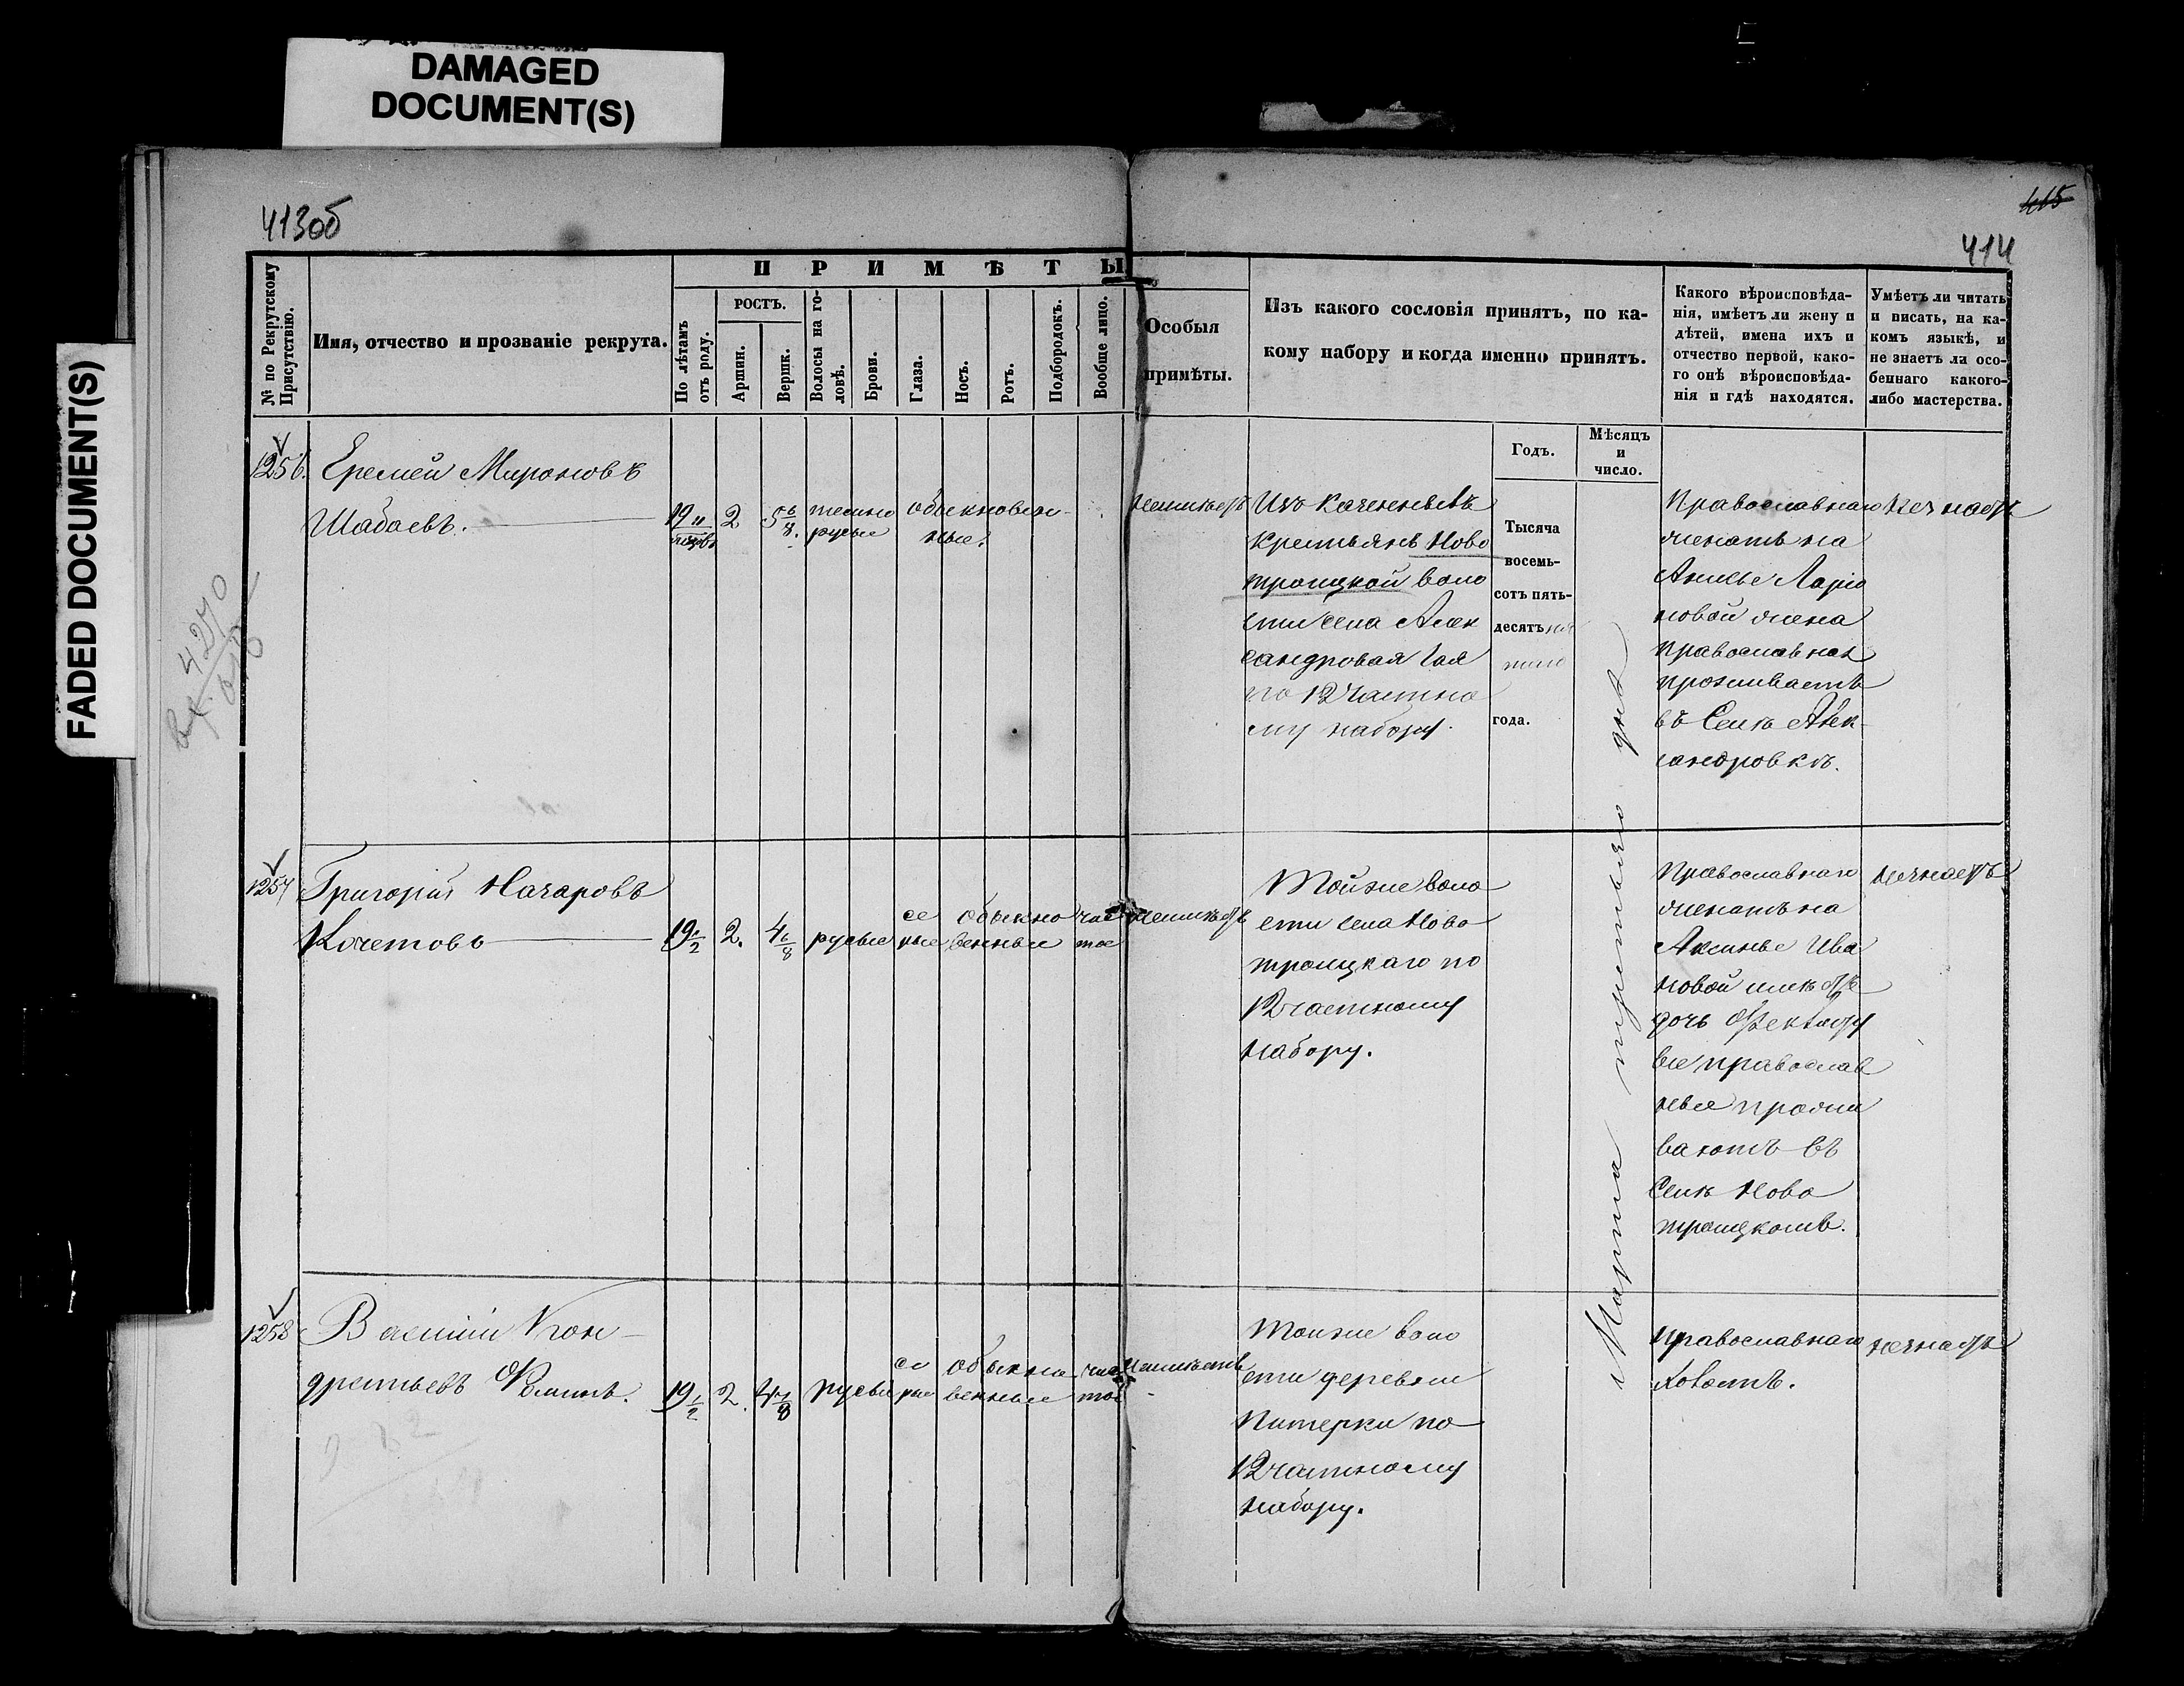 DAMAGED
DOCUMENT(S)
FADED DOCUMENT(S)
413об
415
414
№ по Рекрутскому
Присутствію.
Имя, отчество и прозваніе рекрута.
ПРИМѢТЫ
По лѣтамъ
отъ роду.
РОСТЪ.
Аршин.
Вершк.
Волосы на го-
ловѣ.
Брови.
Глаза.
Носъ.
Ротъ.
Подбородокъ.
Вообще лицо.
Особыя
примѣты.
Изъ какого сословія принятъ, по ка-
кому набору и когда именно принятъ.
Какого вѣроисповѣда-
нія, имѣетъ ли жену и
дѣтей, имена ихъ и
отчество первой, како-
го онѣ вѣроисповѣда-
нія и гдѣ находятся.
Умѣетъ ли читать
и писать, на ка-
комъ языкѣ, и
не знаетъ ли осо-
беннаго какого-
либо мастерства.
Годъ.
Мѣсяцъ
и
число.
1256.
Еремей Мироновъ
Шабаевъ.
19
2
5 6/8.
темно
русые
обыкновен-
ные.
неимѣетъ
Изъ казенныхъ
крестьянъ Ново
троицкой воло
сти села Алек
сандровая Гая
по 12 частно
му набору.
Тысяча
восемь-
сотъ пять-
десятъ пя
таго
года.
Марта третьяго дня
Православнаго
женатъ на
Анисье Ларіо
новой жена
православная
проживаетъ
въ Селѣ Алек-
сандровкѣ.
незнаетъ
1257
Григорій Назаровъ
Кочетовъ
19 1/2
2.
4 6/8
русые
се
рые
обыкно
венные
чис
тое
неимѣетъ
Тойже воло
сти села Ново
троицкаго по
12 частному
набору.
Православнаго
женатъ на
Аксинье Ива
новой имѣетъ
дочь
все православ
ные прожи
ваютъ въ
Селѣ Ново
троицкомъ.
незнаетъ
1258
Василій Кон-
дратьевъ Фоминъ.
19 1/2
2.
4 7/8
русые
се
рые
обыкно
венные
чис
тое
неимѣетъ
Тойже воло
сти деревни
Питерки по
12 частному
набору.
Православнаго
холостъ.
незнаетъ
вх. 4270